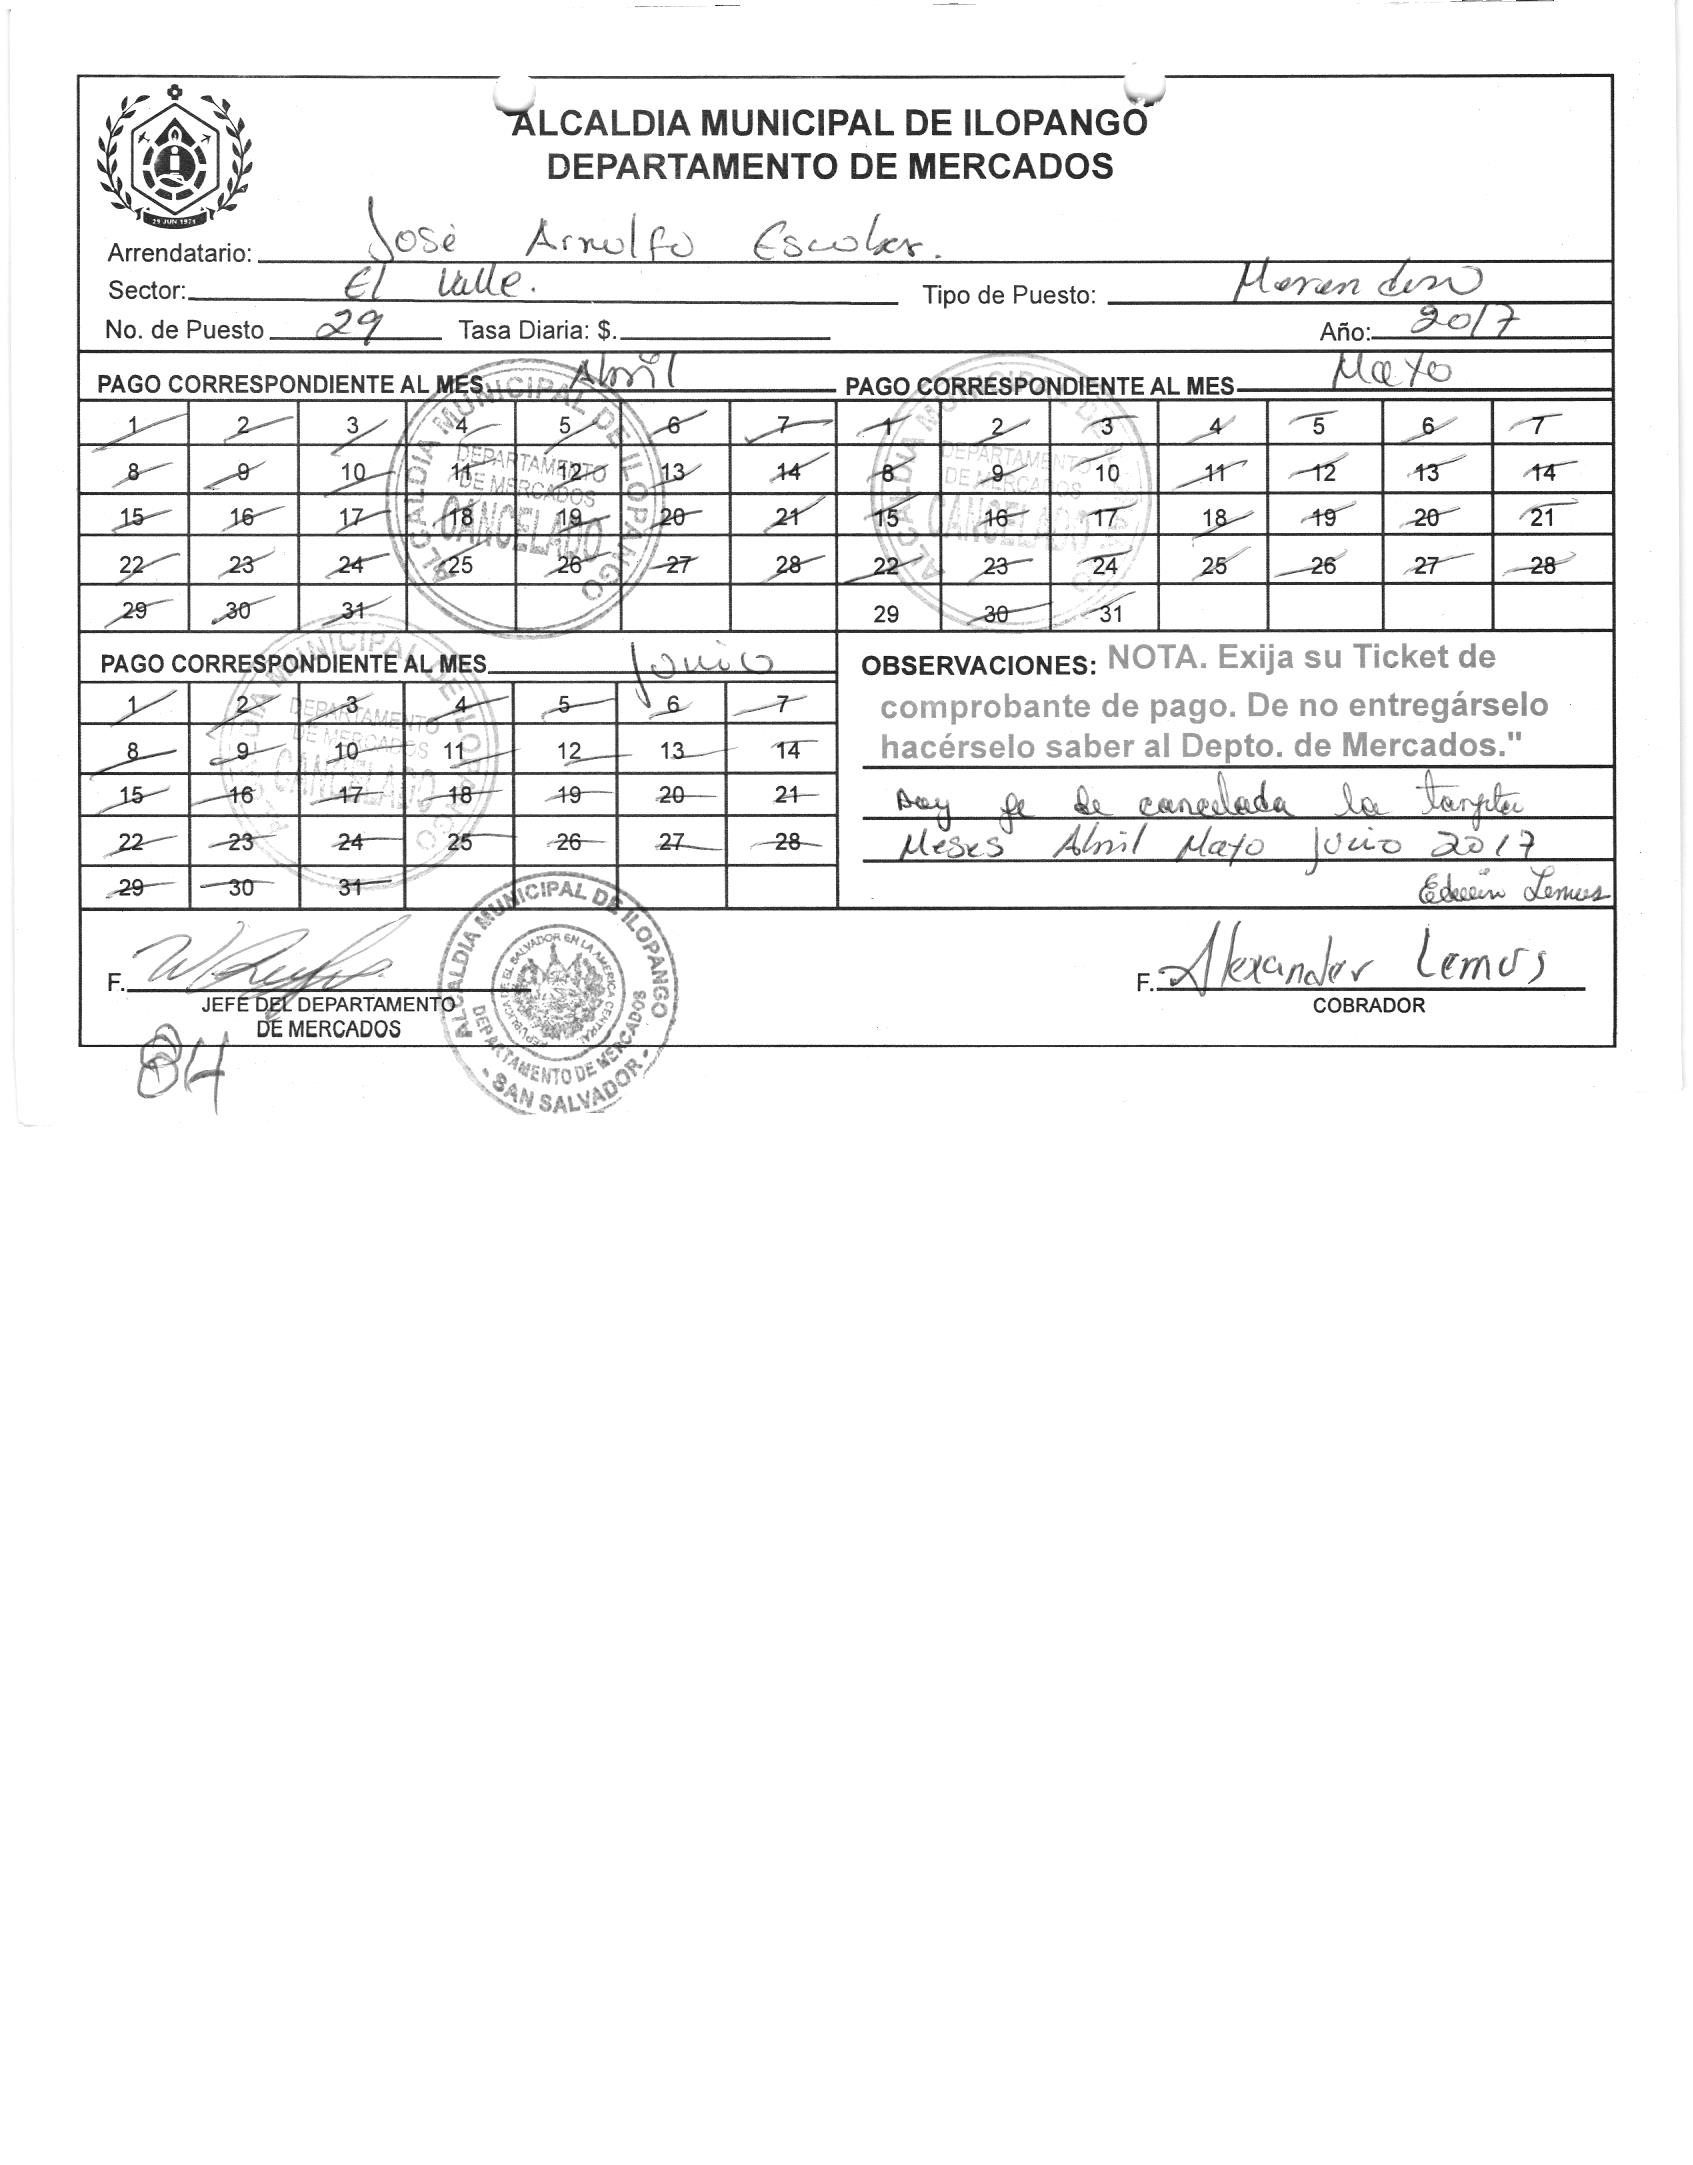 ALCALDIA MUNICIPAL DE ILOPANGO
DEPARTAMENTO DE MERCADOS
29 JUN 1971
Arrendatario: José Arnulfo Escobar.
Sector: El Valle.
Tipo de Puesto: Merendero
No. de Puesto 29 Tasa Diaria: $.
Año: 2017
PAGO CORRESPONDIENTE AL MES Abril
1 2 3 4 5 6 7
8 9 10 11 12 13 14
15 16 17 18 19 20 21
22 23 24 25 26 27 28
29 30 31
ALCALDIA MUNICIPAL DE ILOPANGO
DEPARTAMENTO
DE MERCADOS
CANCELADO
PAGO CORRESPONDIENTE AL MES Mayo
1 2 3 4 5 6 7
8 9 10 11 12 13 14
15 16 17 18 19 20 21
22 23 24 25 26 27 28
29 30 31
ALCALDIA MUNICIPAL DE
DEPARTAMENTO
DE MERCADOS
CANCELADO
PAGO CORRESPONDIENTE AL MES Junio
1 2 3 4 5 6 7
8 9 10 11 12 13 14
15 16 17 18 19 20 21
22 23 24 25 26 27 28
29 30 31
ALCALDIA MUNICIPAL DE ILOPANGO
DEPARTAMENTO
DE MERCADOS
CANCELADO
OBSERVACIONES: NOTA. Exija su Ticket de
comprobante de pago. De no entregárselo
hacérselo saber al Depto. de Mercados."
Doy fe de cancelada la tarjeta
Meses Abril Mayo Junio 2017
Edwin Lemus
F.
JEFE DEL DEPARTAMENTO
DE MERCADOS
ALCALDIA MUNICIPAL DE ILOPANGO
REPUBLICA DE EL SALVADOR EN LA AMERICA CENTRAL
DEPARTAMENTO DE MERCADOS
- SAN SALVADOR -
F. Alexander Lemus
COBRADOR
84